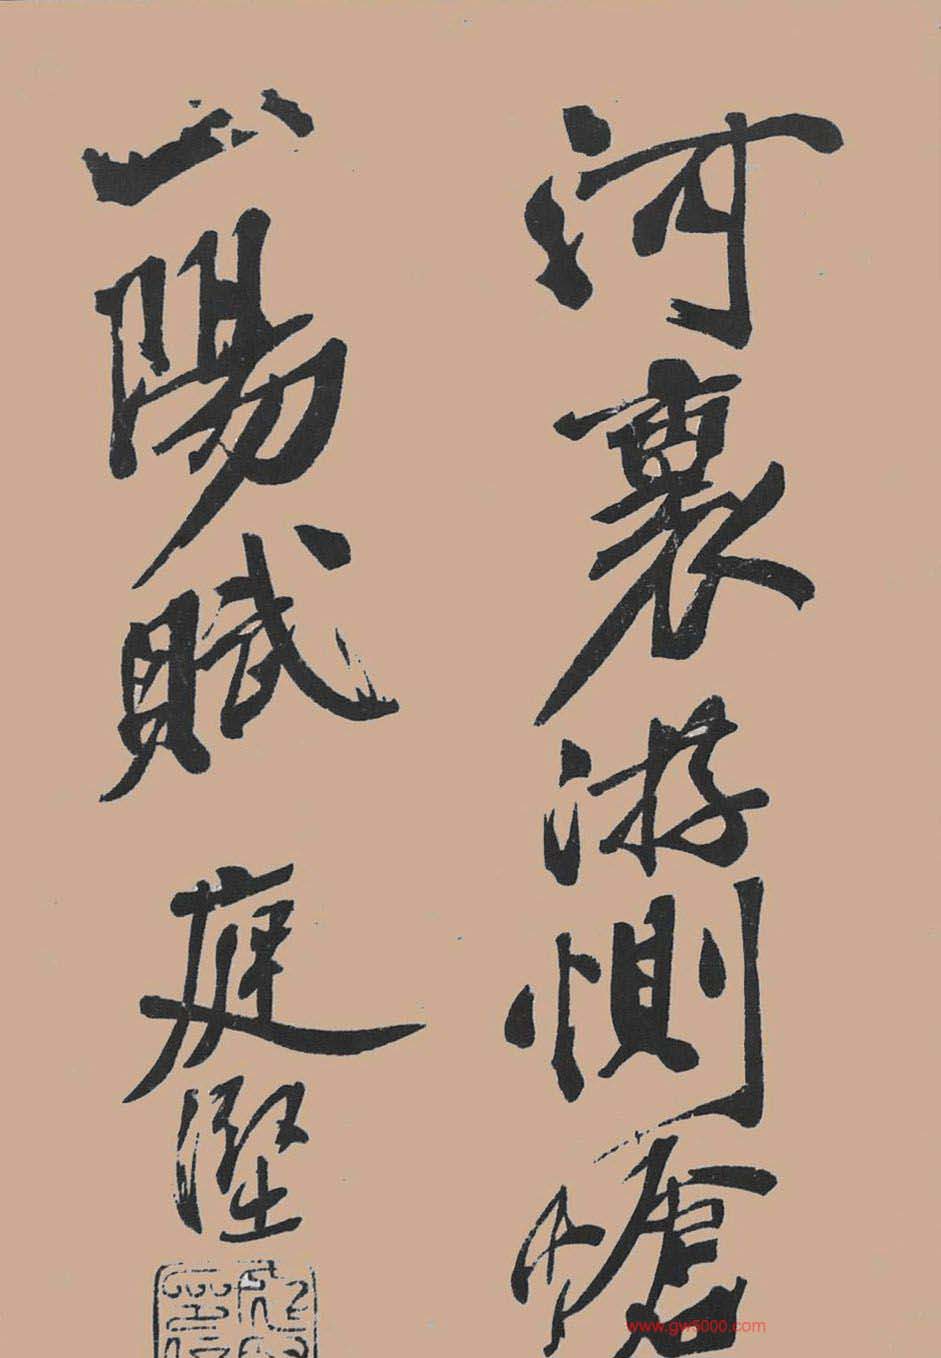 河裏游惻愴
山陽賦 庭堅
www.gw5000.com